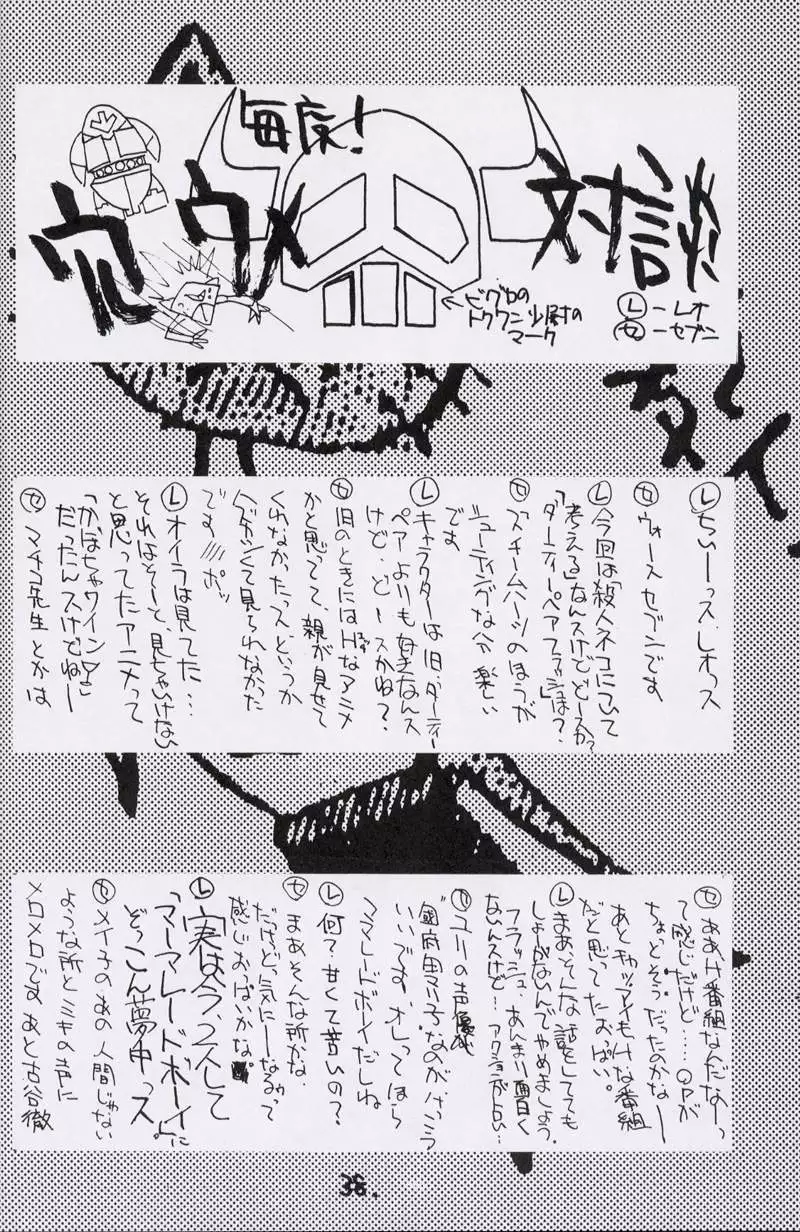 毎度!
ウルウメ対談
Ⓛ－レオ
㋝－セブン
←ビグロの
トクワン少尉の
マーク
Ⓛちぃーっス、レオっス
㋝ウォースセブンです
Ⓛ今回は「殺人ネコについて
考える」なんスけどどースか?
「ダーティーペアフラッシュ」は?
㋝ズチームハーツのほうが
シューティングな分楽しい
です
Ⓛキャラクターは旧、ダーティー
ペアよりも好きなんス
けど、どースかね?
㋝旧のときにはHなアニメ
かと思ってて、親が見せて
くれなかったっス、というか
ハズカシくて見られなかった
です////ポッ
Ⓛオイラは見てた…
それはそーと、見ちゃいけない
と思ってたアニメって
「かぼちゃワイン♡」
だったんスけどねー
㋝マチコ先生とかは
㋝ああH番組なんだなーっ
て感じだけど……QPが
ちょっとそうだったのかなー
あとキャッツアイもHな番組
だと思ってたおっぱい。
Ⓛまあ、そんな話をしてても
しょーがないんでやめましょう。
フラッシュ、あんまり面白く
ないんスけど…アクションが占い…
㋝ユリの声優が
國府田マリ子なのがけっこう
いいです、オレってほら
ママレードボイだしね
Ⓛ何?甘くて苦いの?
㋝まあそんな所かな、
だけど気にーなるゥって
感じおっぱいかな。
Ⓛ実は今、2人して
「マーマレードボーイ」に
ぞっこん夢中っス。
㋝メイ子のあの人間じゃない
ような所とミキの声に
メロメロです、あと古谷徹
38.